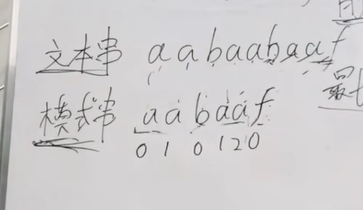 文本串 aabaabaaf
模式串 aabaaf
010120